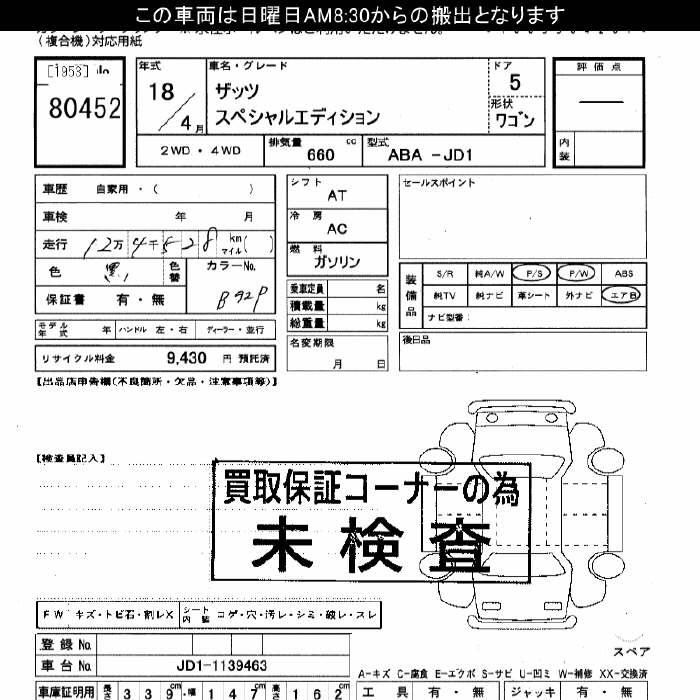 この車両は日曜日AM8:30からの搬出となります
(複合機)対応用紙
[1953]
80452
年式
18/4月
車名・グレード
ザッツ
スペシャルエディション
ドア
5
形状
ワゴン
評価点
内装
2WD・4WD
排気量 660 cc
型式 ABA -JD1
車歴 自家用・( )
車検 年 月
走行 12万4千528 km マイル( )
色 黒
色替
カラーNo. B92P
保証書 有・無
モデル年式 年 ハンドル 左・右 ディーラー・並行
リサイクル料金 9,430 円 預託済
シフト AT
冷房 AC
燃料 ガソリン
乗車定員 名
積載量 kg
総重量 kg
名変期限
月 日
セールスポイント
装備品
S/R 純A/W P/S P/W ABS
純TV 純ナビ 革シート 外ナビ エアB
ナビ型番:
後日品
【出品店申告欄(不良箇所・欠品・注意事項等)】
【検査員記入】
買取保証コーナーの為
未検査
FW キズ・トビ石・割レX
シート内装 コゲ・穴・汚レ・シミ・破レ・スレ
登録No.
車台No. JD1-1139463
車庫証明用 長さ 339cm・幅 147cm 高さ 162cm
スペア
A-キズ C-腐食 E-エクボ S-サビ U-凹ミ W-補修 XX-交換済
工具 有・無 ジャッキ 有・無